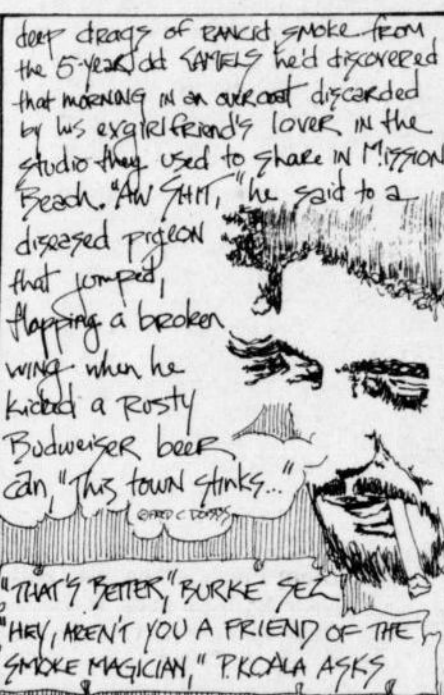 deep drags of RANCID smoke from
the 5-year old CAMELS he'd discovered
that MORNING IN an overcoat discarded
by his exgirlfriend's lover IN the
studio they used to share IN MISSION
Beach. "AW SHIT," he said to a
diseased pigeon
that jumped,
flapping a broken
wing when he
kicked a RUSTY
Budweiser beer
can, "This town stinks..."
"THAT'S BETTER," BURKE SEZ
"HEY, AREN'T YOU A FRIEND OF THE
SMOKE MAGICIAN," P. KOALA ASKS